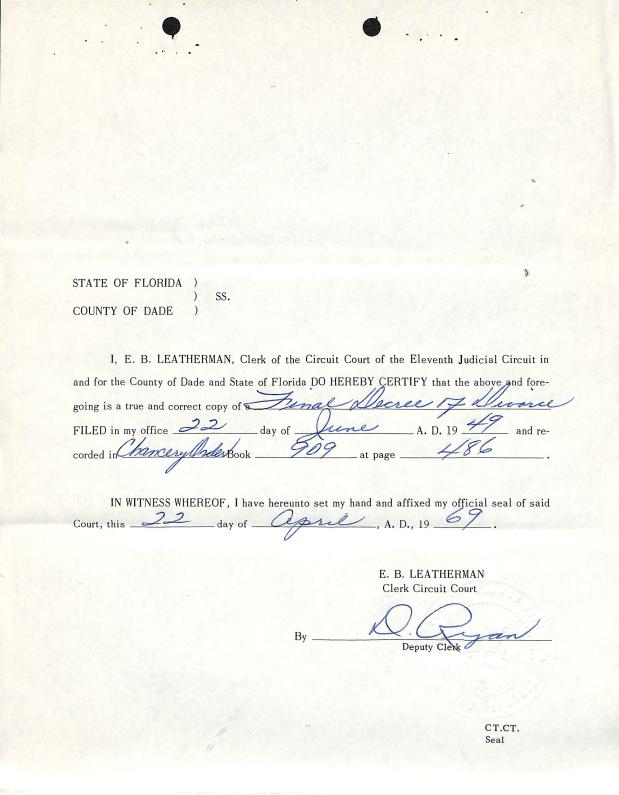 STATE OF FLORIDA )
) SS.
COUNTY OF DADE )
I, E. B. LEATHERMAN, Clerk of the Circuit Court of the Eleventh Judicial Circuit in
and for the County of Dade and State of Florida DO HEREBY CERTIFY that the above and fore-
going is a true and correct copy of a Final Decree of Divorce
FILED in my office 22 day of June A. D. 19 49 and re-
corded in Chancery Order Book 909 at page 486 .
IN WITNESS WHEREOF, I have hereunto set my hand and affixed my official seal of said
Court, this 22 day of April , A. D., 19 69 .
E. B. LEATHERMAN
Clerk Circuit Court
By D. Ryan
Deputy Clerk
CT.CT.
Seal